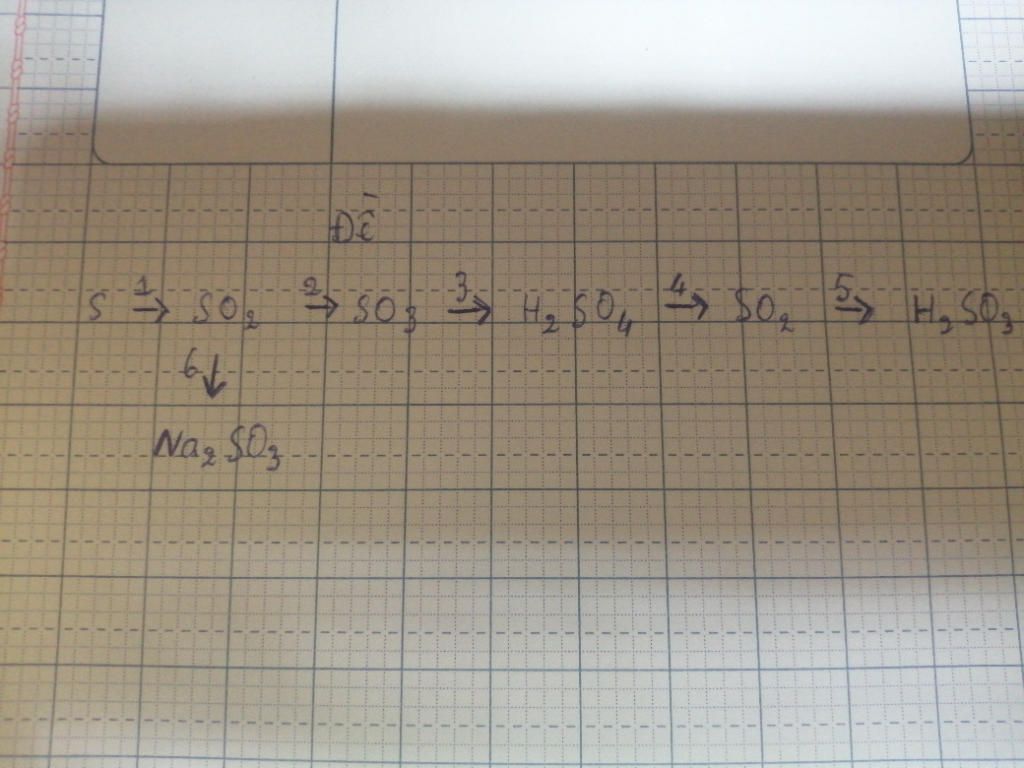 Đề
S →1 SO₂ →2 SO₃ →3 H₂SO₄ →4 SO₂ →5 H₂SO₃
6↓
Na₂SO₃